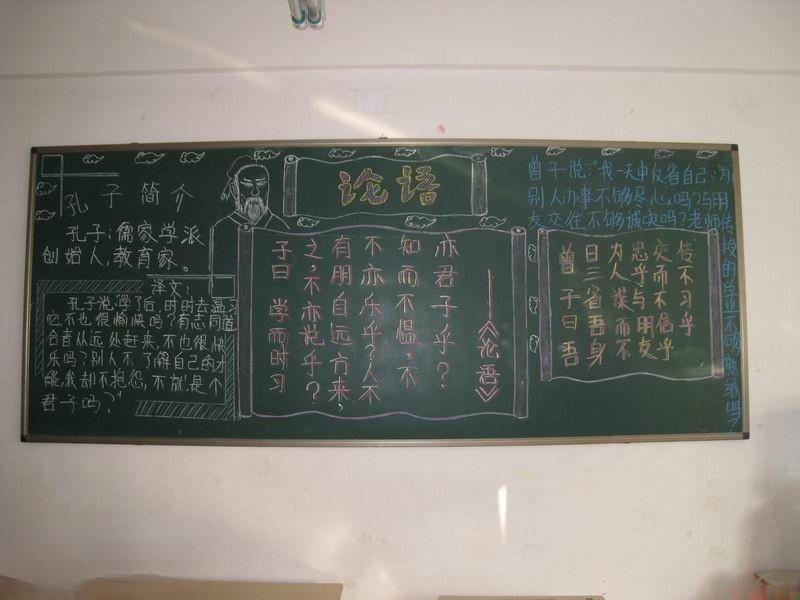 论语
孔子简介
孔子:儒家学派
创始人,教育家。
译文:
孔子说:学了后,时时去温习
它,不也很愉快吗?有志同道
合者从远处赶来,不也很快
乐吗?别人不了解自己的才
能,我却不抱怨,不就是个
君子吗?”
子曰 学而时习
之,不亦说乎?
有朋自远方来,
不亦乐乎?人不
知而不愠,不
亦君子乎?
——《论语》
曾子说:“我一天中反省自己:为
别人办事不够尽心吗?与朋
友交往不够诚实吗?老师传
授的 不够 吗?
曾子曰吾
日三省吾身
为人谋而不
忠乎与朋友
交而不信乎
传不习乎